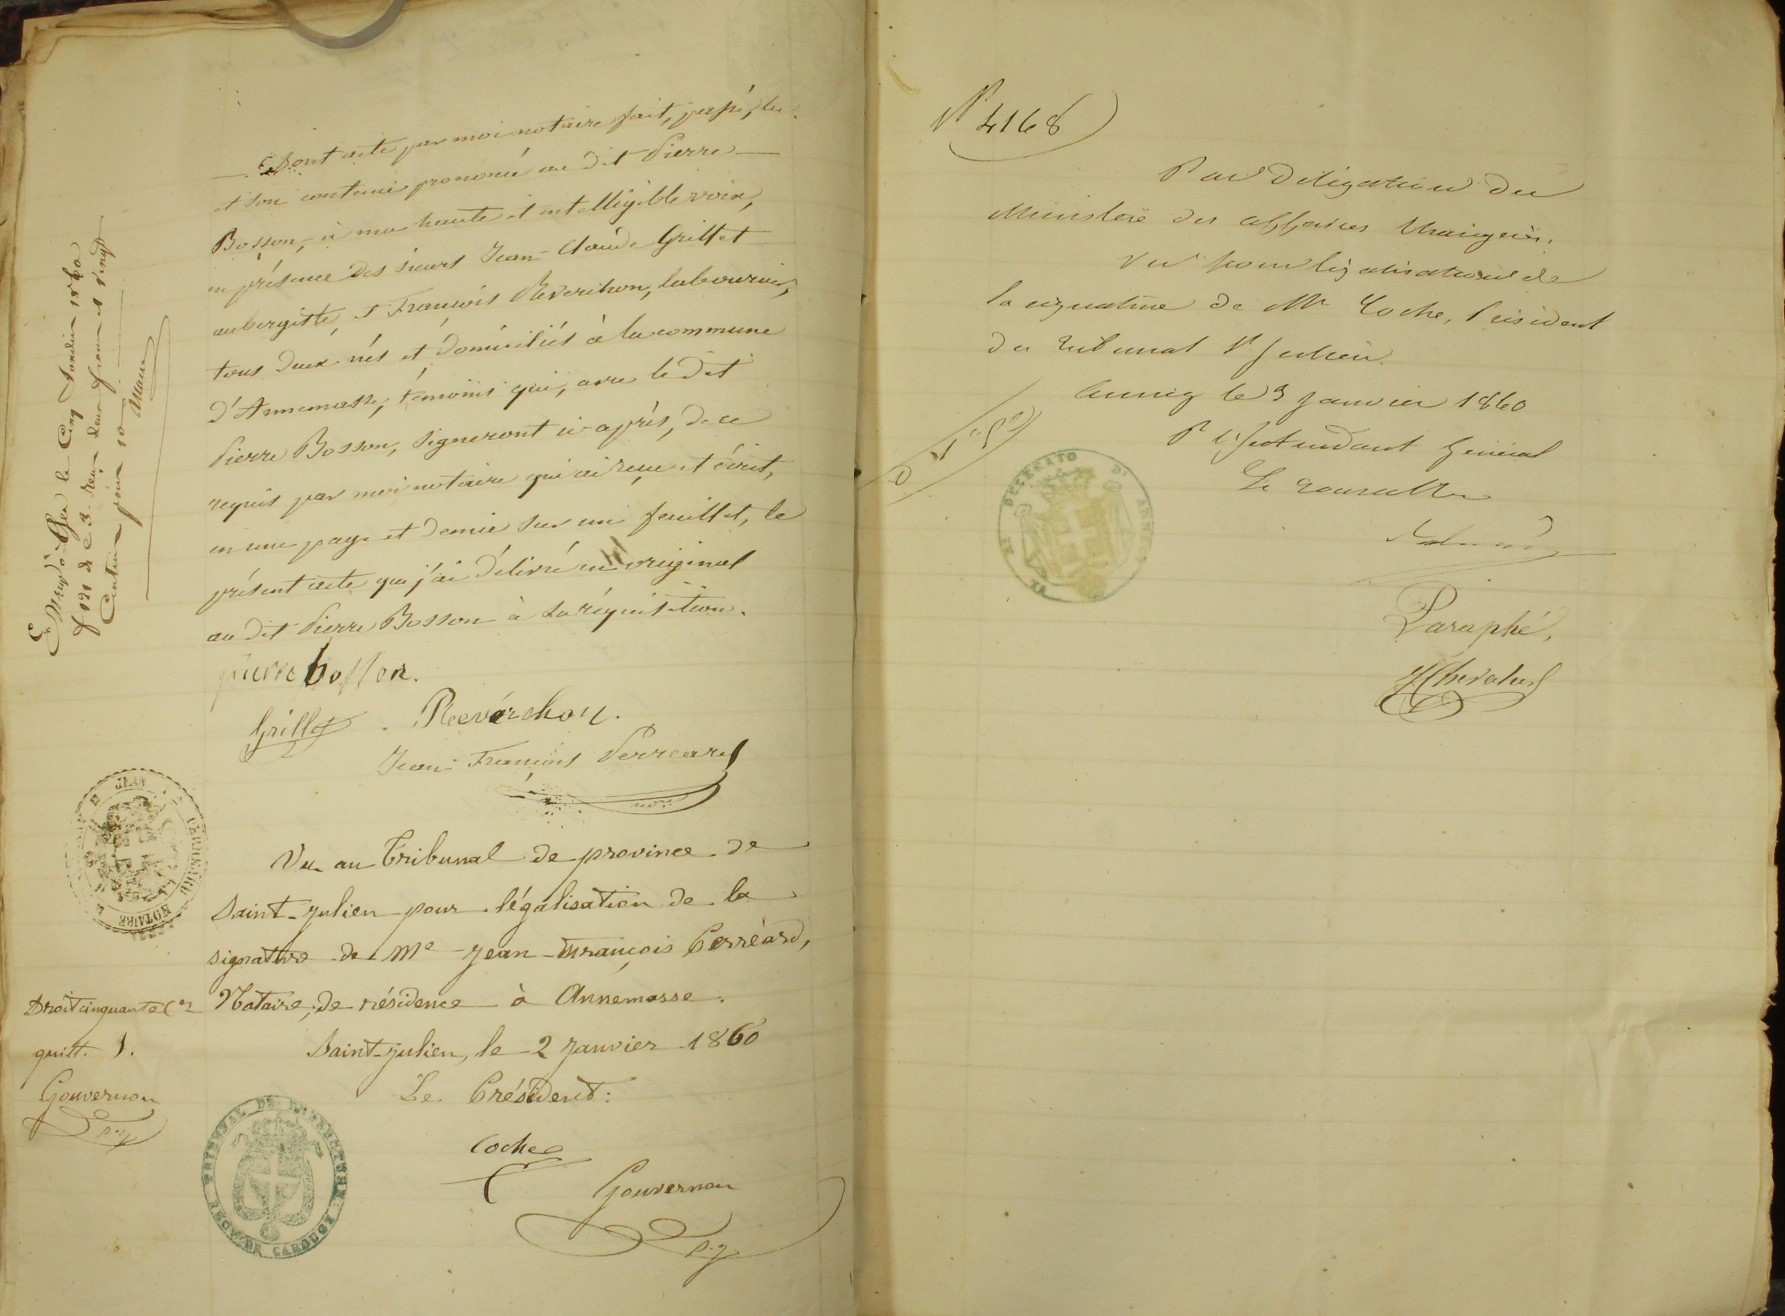 Dont acte par moi notaire fait, passé, lu
et son contenu prononcé au dit Pierre
Bosson, à ma haute et intelligible voix,
en présence des sieurs Jean-Claude Grillet
aubergiste, et François Reverchon, laboureur,
tous deux nés et domiciliés à la commune
d'Annemasse, témoins qui, avec le dit
Pierre Bosson, signeront ci-après, de ce
requis par moi notaire qui ai reçu et écrit,
en une page et demie sur un feuillet, le
présent acte que j'ai délivré en original
au dit Pierre Bosson à sa réquisition.
pierre bosson.
Grillet. Reverchon.
Jean-François Perreard
nore
Vu au Tribunal de province de
Saint-Julien pour légalisation de la
signature de Me Jean-François Perréard,
Notaire, de résidence à Annemasse.
Saint-Julien, le 2 Janvier 1860
Le Président:
Coche
Gouvernon
Droit cinquante Ces
quitt. 1.
Gouvernon
le Cinq Janvier 1860
JEAN
NOTAIRE
TRIBUNAL DE
DE CAROUGE
N° 4168
Par Délégation du
Ministère des affaires étrangères.
Vu pour légalisation de
la signature de Mr Coche, Président
du Tribunal St Julien.
Annecy le 3 Janvier 1860
Pr l'Intendant Général
Le Conseiller
Paraphé,
Chevalier